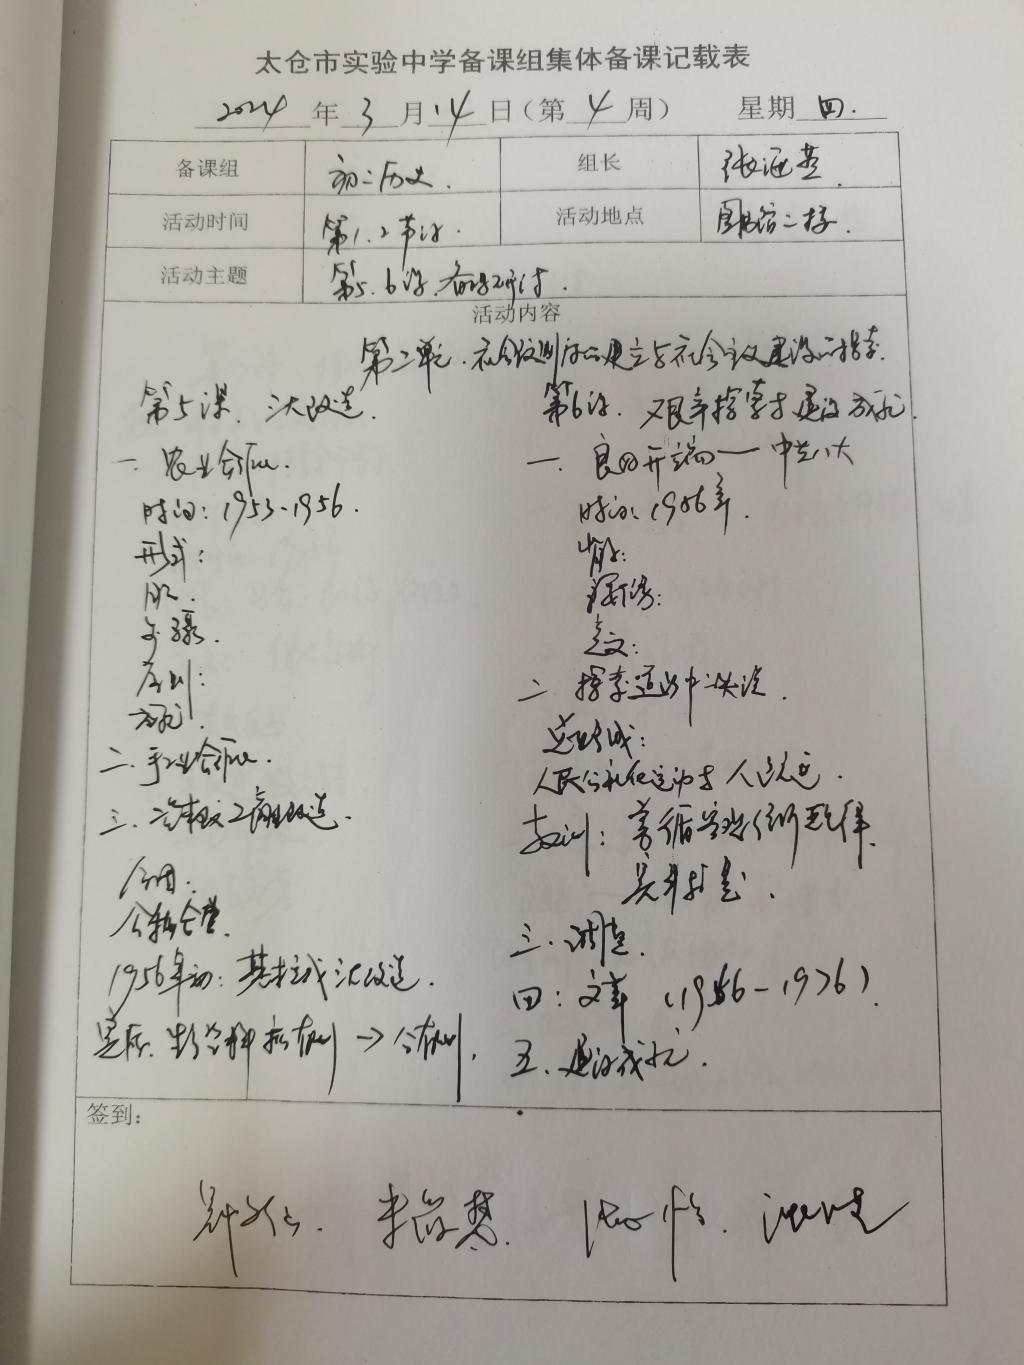 太仓市实验中学备课组集体备课记载表
2024年3月14日（第4周） 星期四.
备课组 初二历史. 组长
活动时间 第1.2节课. 活动地点 图书馆二楼.
活动主题 第5.6课.备课研讨.
活动内容
第二单元.社会主义制度的建立与社会主义建设的探索.
第5课. 三大改造.
一. 农业合作化.
时间: 1953-1956.
形式:
步骤.
原则:
成就.
二.手工业合作化.
三.资本主义工商业改造.
公私合营.
1956年初: 基本完成三大改造.
实质. 生产资料私有制→公有制.
第6课. 艰辛探索与建设成就.
一. 良好开端一中共八大
时间: 1956年.
内容:
意义:
二. 探索道路中失误.
总路线:
人民公社化运动与大跃进.
教训: 要遵循客观经济规律.
实事求是.
三.调整.
四: 文革 (1966-1976).
五、建设成就.
签到: